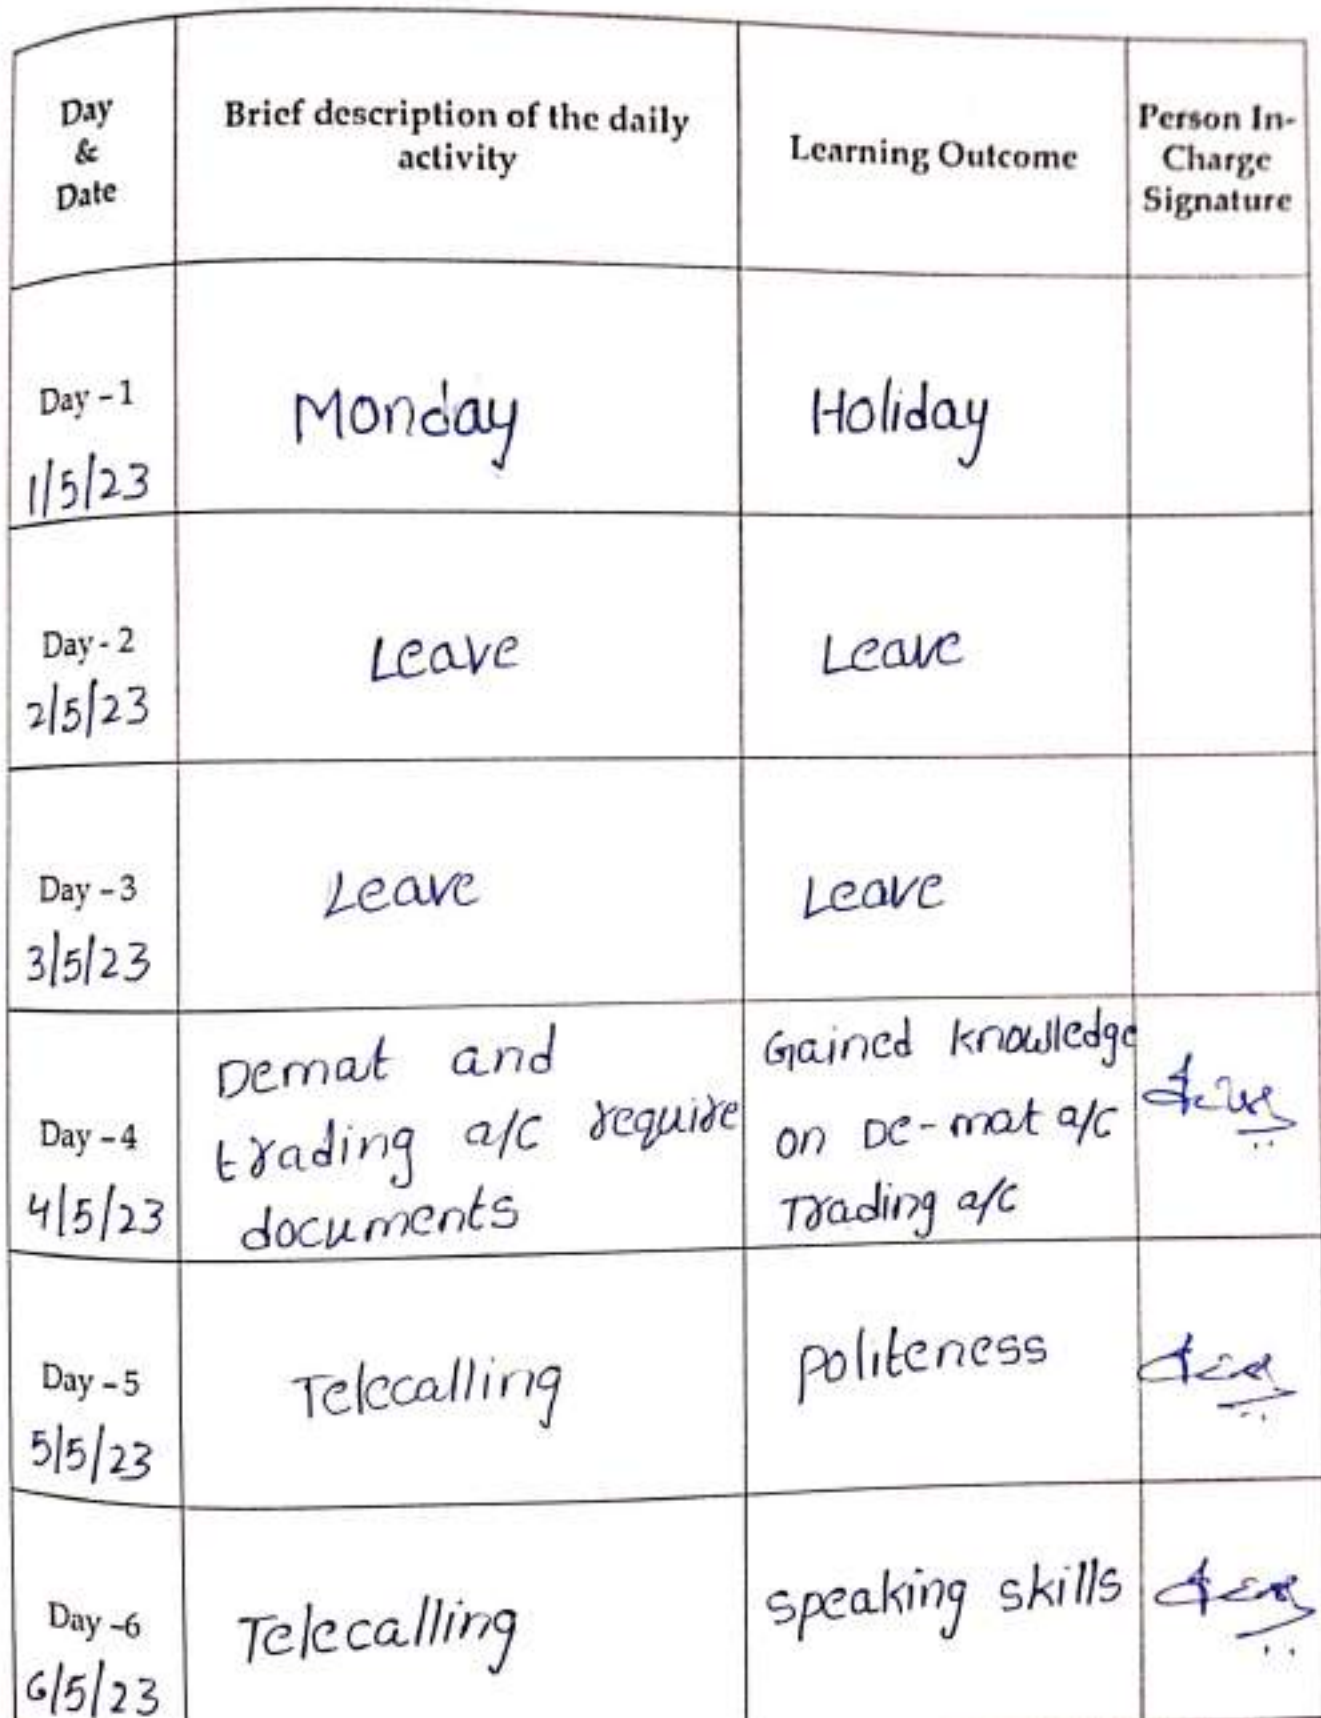 Day
&
Date
Brief description of the daily
activity
Learning Outcome
Person In-
Charge
Signature
Day - 1
1/5/23
Monday
Holiday
Day - 2
2/5/23
Leave
Leave
Day - 3
3/5/23
Leave
Leave
Day - 4
4/5/23
Demat and
trading a/c require
documents
Gained knowledge
on De-mat a/c
Trading a/c
Day - 5
5/5/23
Telecalling
Politeness
Day -6
6/5/23
Telecalling
speaking skills